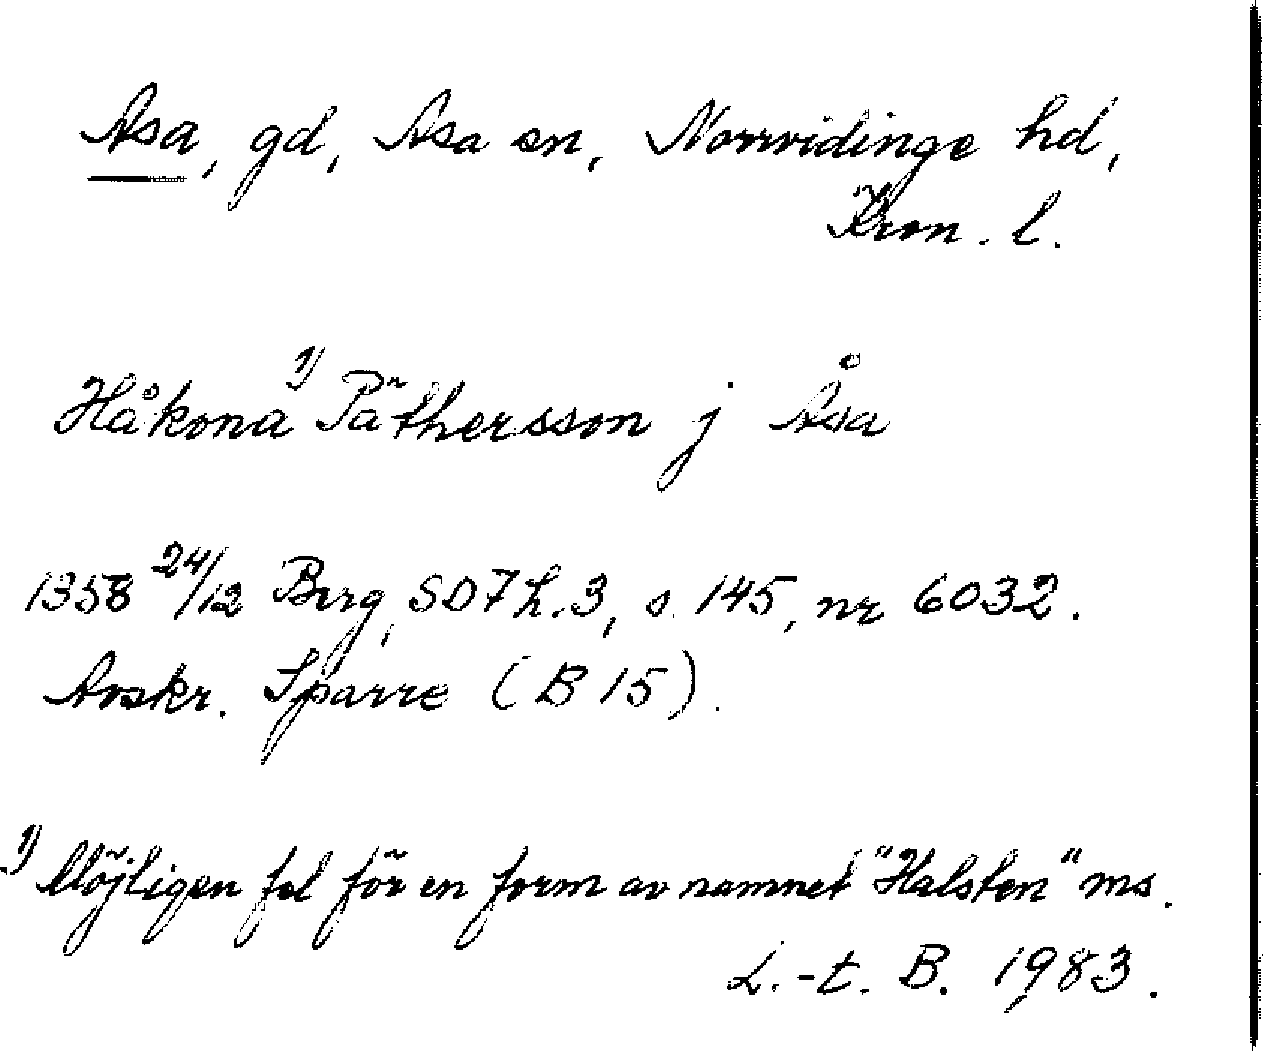 Asa, gd, Asa sn, Norrvidinge hd,
Kron. l.
Håkona 1) Päthersson j Åsa
1358 24/12 Berg, SD 7 h. 3, s. 145, nr 6032.
Avskr. Sparre (B 15).
1) Möjligen fel för en form av namnet "Halsten" ms.
L.-t. B. 1983.